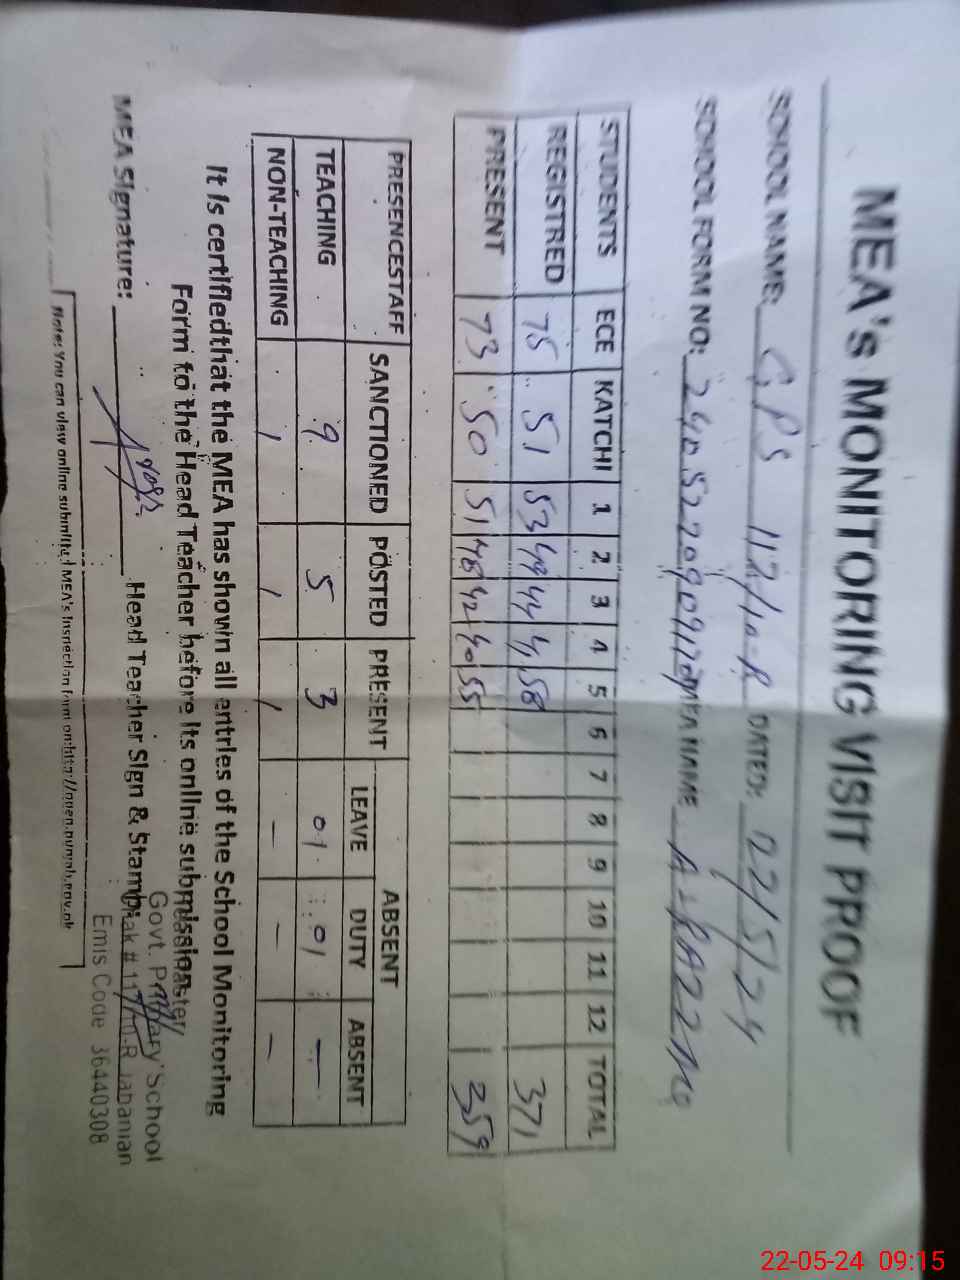 MEA's MONITORING VISIT PROOF
SCHOOL NAME: GPS 117/10-R DATED: 22/5/24
SCHOOL FORM NO: MEA NAME A-RAZZAQ
STUDENTS ECE KATCHI 1 2 3 4 5 6 7 8 9 10 11 12 TOTAL
REGISTRED 75 51 53 49 44 41 58 371
PRESENT 73 50 51 48 42 40 55 359
PRESENCESTAFF SANCTIONED POSTED PRESENT ABSENT
LEAVE DUTY ABSENT
TEACHING 9 5 3 01 01 —
NON-TEACHING 1 1 1 — — —
It is certifiedthat the MEA has shown all entries of the School Monitoring
Form to the Head Teacher before its online submission.
MEA Signature: Head Teacher Sign & Stamp:
Govt. Primary School
Chak # 117/10-R Jahanian
Emis Code 36440308
Note: You can view online submitted MEA's Inspection form on:http://open.punjab.gov.pk
22-05-24 09:15